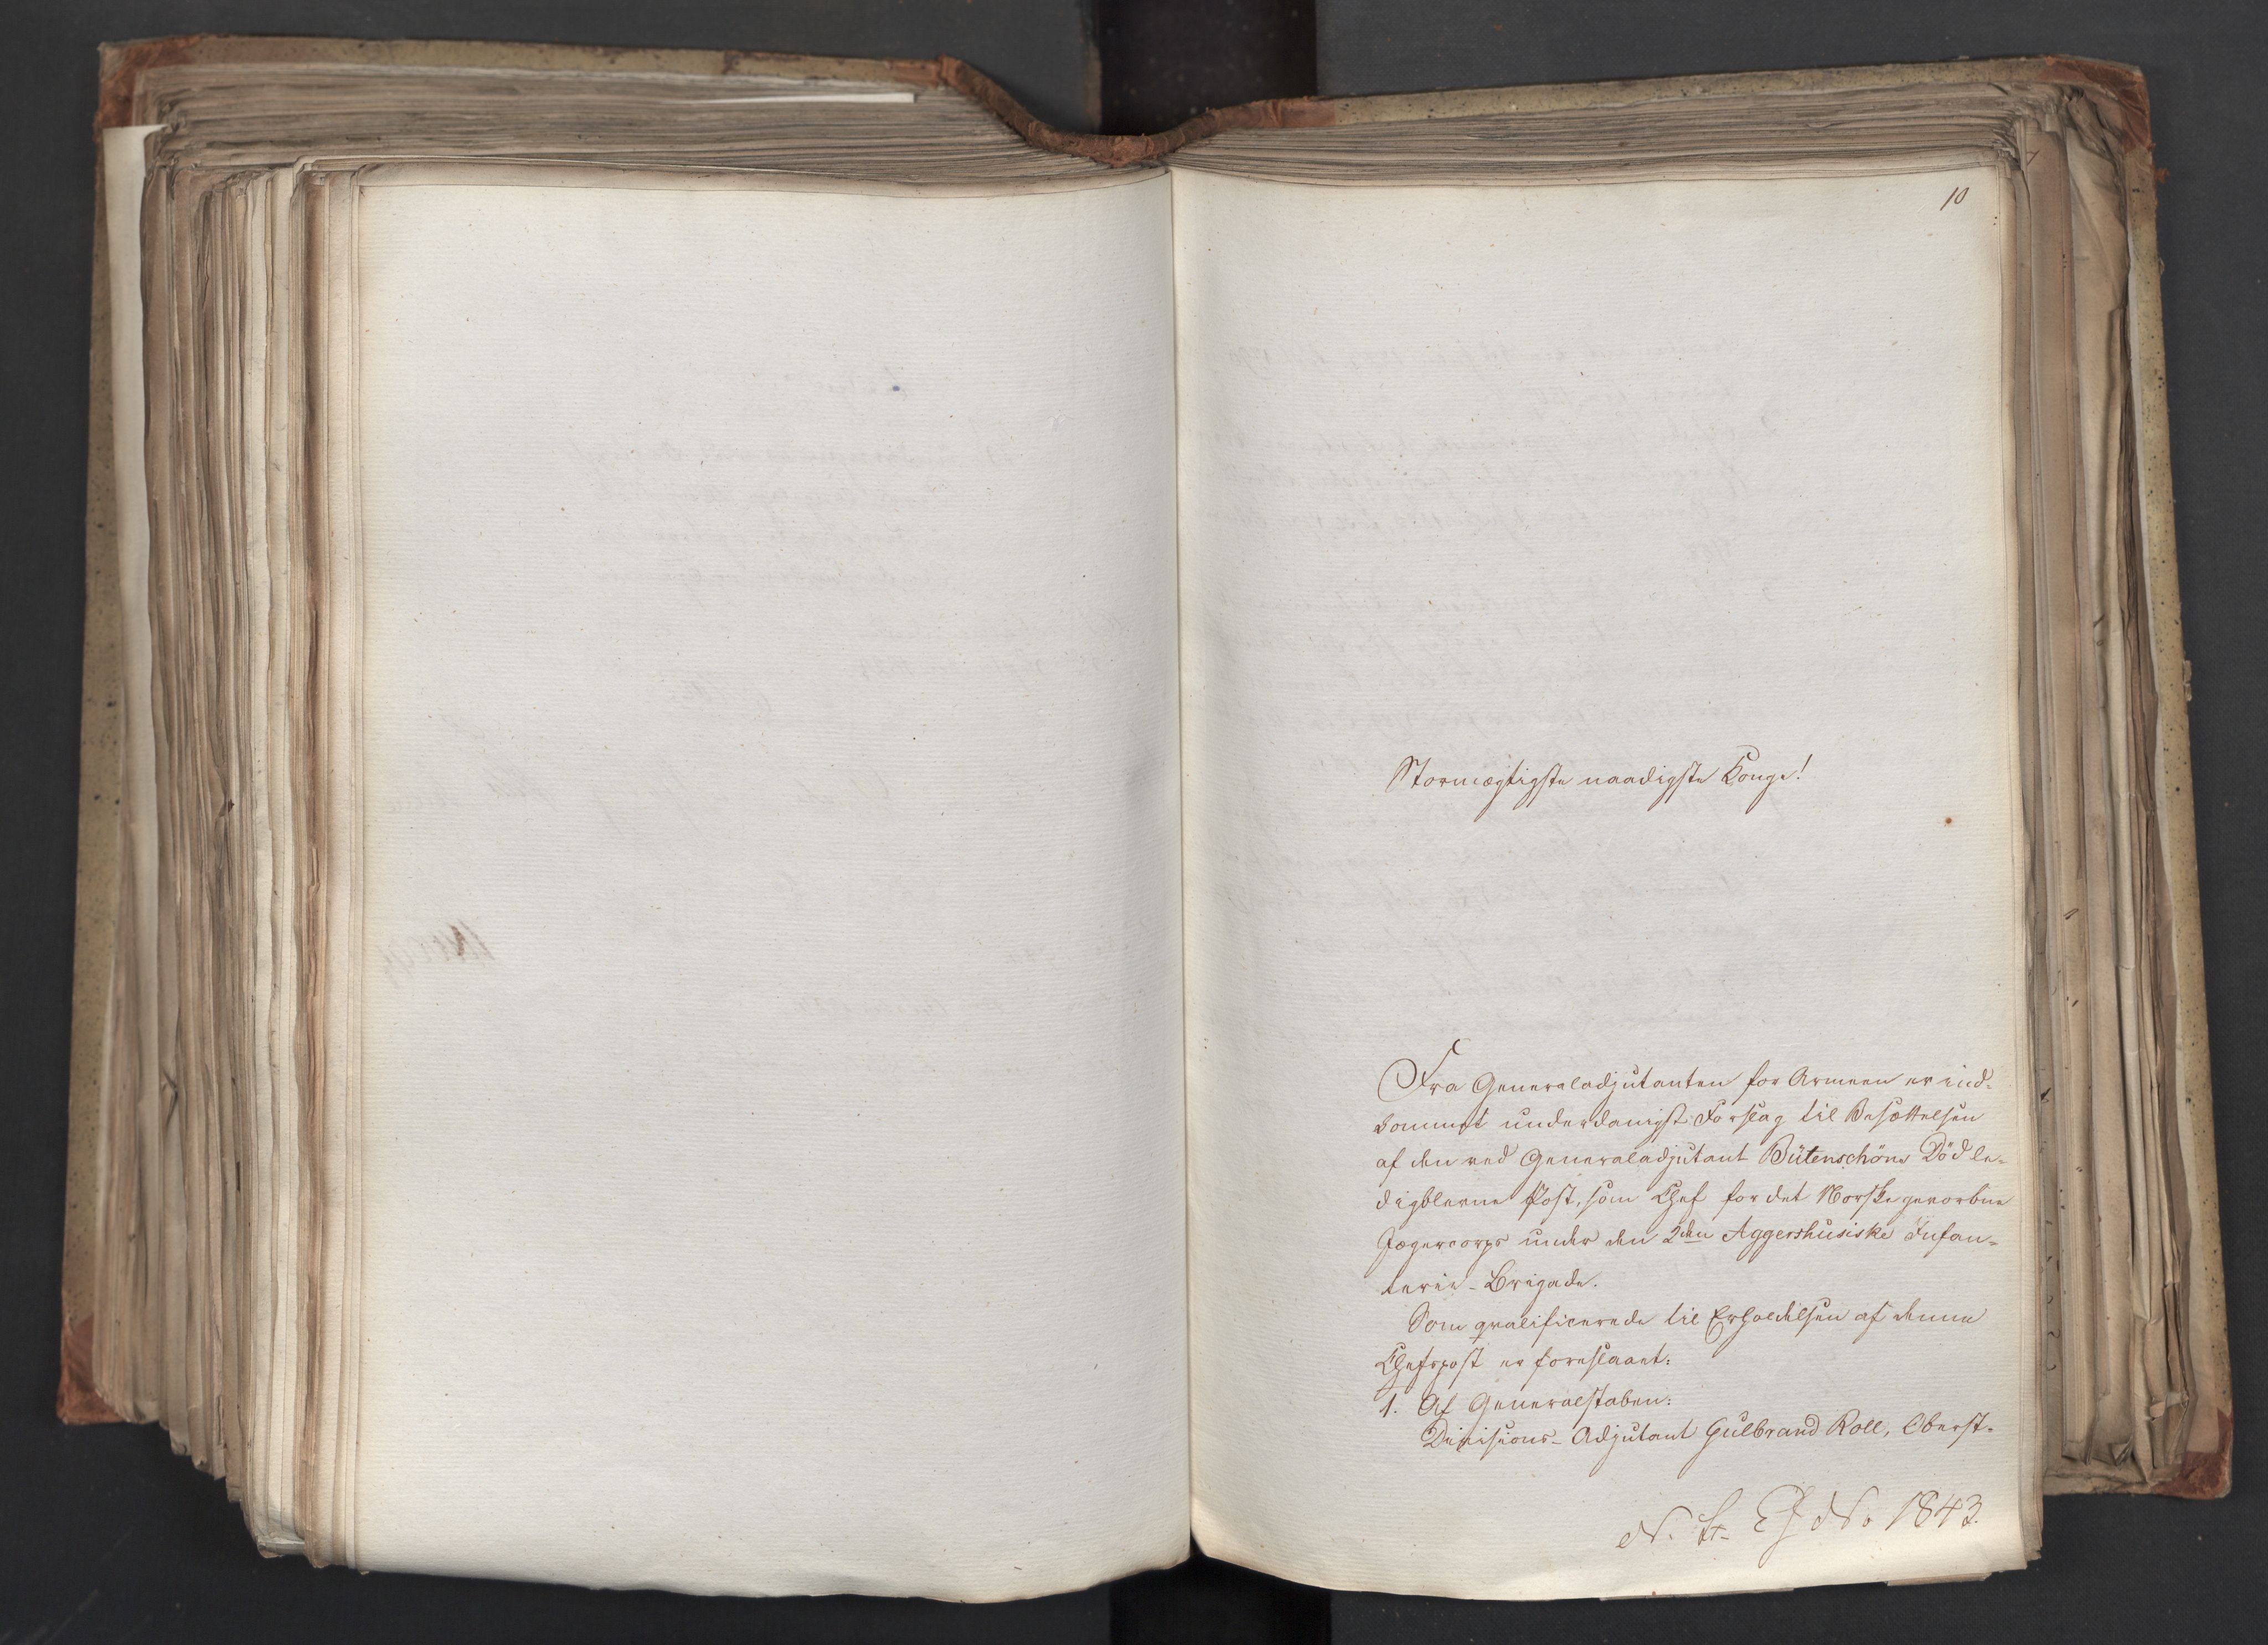 10
Stormægtigste naadigste Konge!
Fra Generaladjutanten for Armeen er ind-
kommet underdanigst Forslag til Besættelsen
af den ved Generaladjutant Bütenschöns Död le-
digblevne Post, som Chef for det Norske gevorbne
Jægercorps under den 2den Aggershusiske Infan-
terie-Brigade.
Som qvalificerede til Erholdelsen af denne
Chefspost er foreslaaet:
1. Af Generalstaben:
Divisions-Adjutant Gulbrand Roll, Oberst-
No 1843.